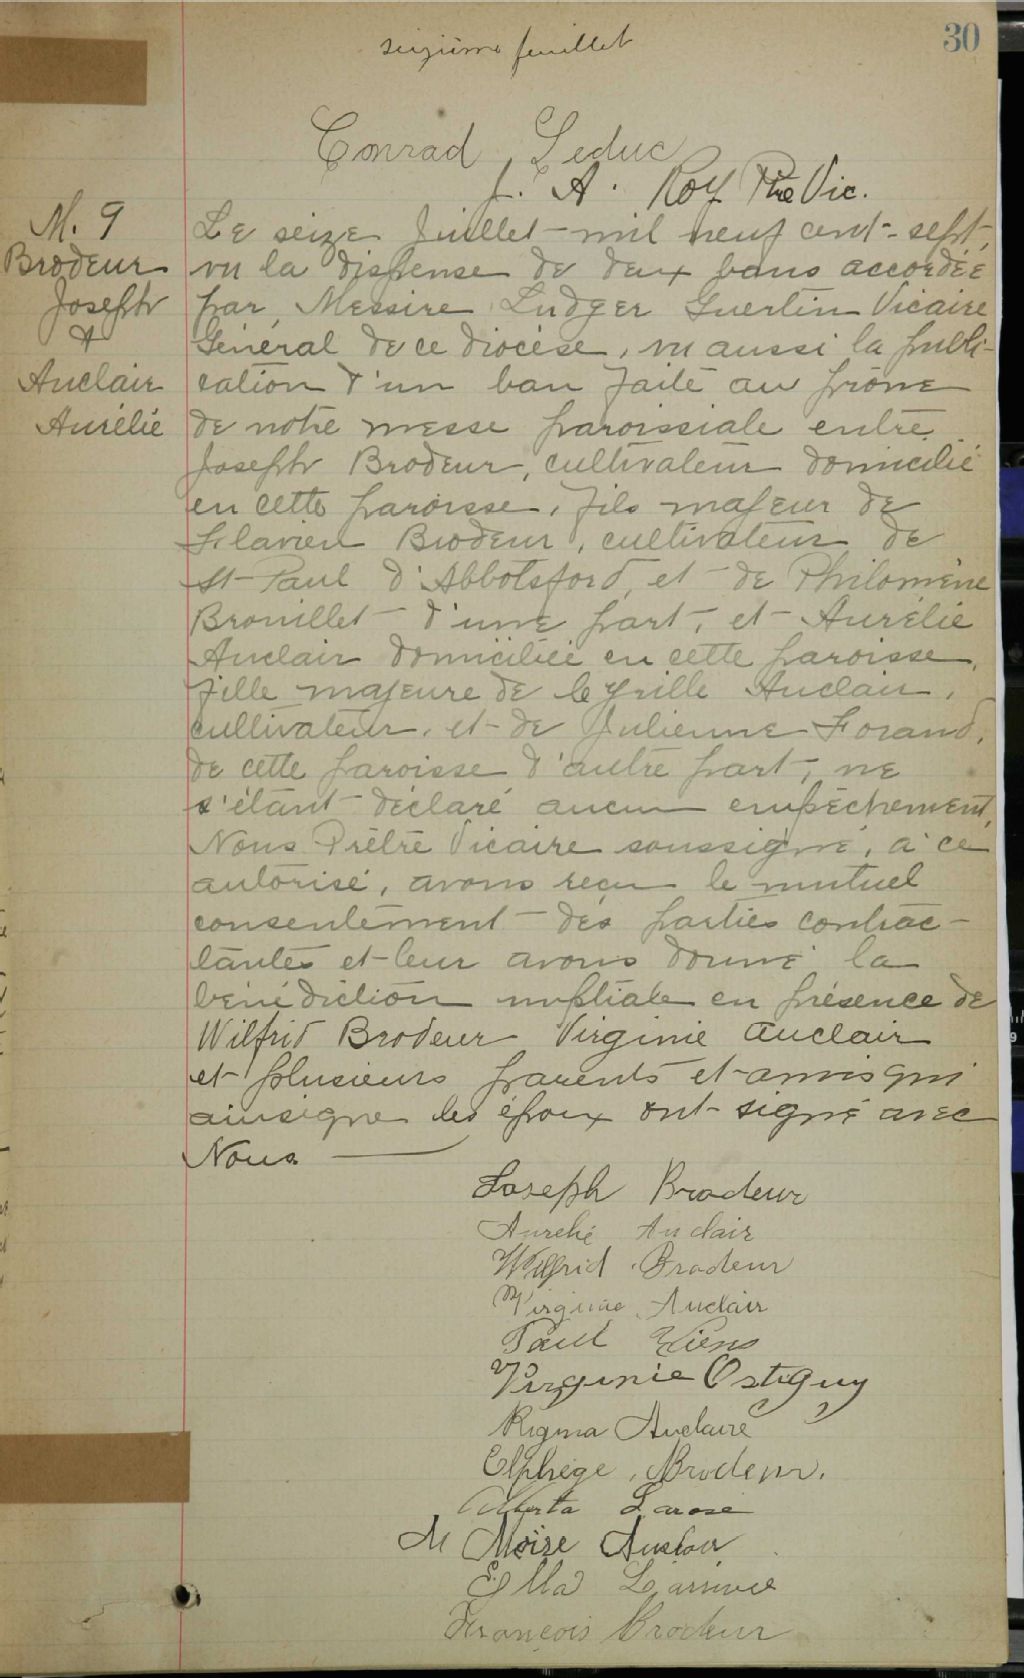 seizième feuillet
30
Conrad Leduc
J. A. Roy Ptre Vic.
M. 9
Brodeur
Joseph
&
Auclair
Aurélie
Le seize Juillet mil neuf cent-sept,
vu la dispense de deux bans accordée
par Messire Ludger Guertin Vicaire
Général de ce diocèse, vu aussi la publi-
cation d'un ban faite au prône
de notre messe paroissiale entre
Joseph Brodeur, cultivateur domicilié
en cette paroisse, fils majeur de
Flavien Brodeur, cultivateur de
St-Paul d'Abbotsford, et de Philomène
Brouillet d'une part, et Aurélie
Auclair domiciliée en cette paroisse,
fille majeure de Auclair,
cultivateur, et de Julienne Forand,
de cette paroisse d'autre part, ne
s'étant déclaré aucun empêchement,
Nous Prêtre Vicaire soussigné, à ce
autorisé, avons reçu le mutuel
consentement des parties contrac-
tantes et leur avons donné la
bénédiction nuptiale en présence de
Wilfrid Brodeur Virginie Auclair
et plusieurs parents et amis qui
ainsique les époux ont signé avec
Nous.
Joseph Brodeur
Aurelié Auclair
Wilfrid Brodeur
Virginie Auclair
Paul Viens
Virginie Ostiguy
Rigina Auclaire
Elphège Brodeur.
Alberta Larose
M Moise Auclair
Ella Larrivée
François Brodeur